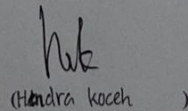 (Hendra koceh )